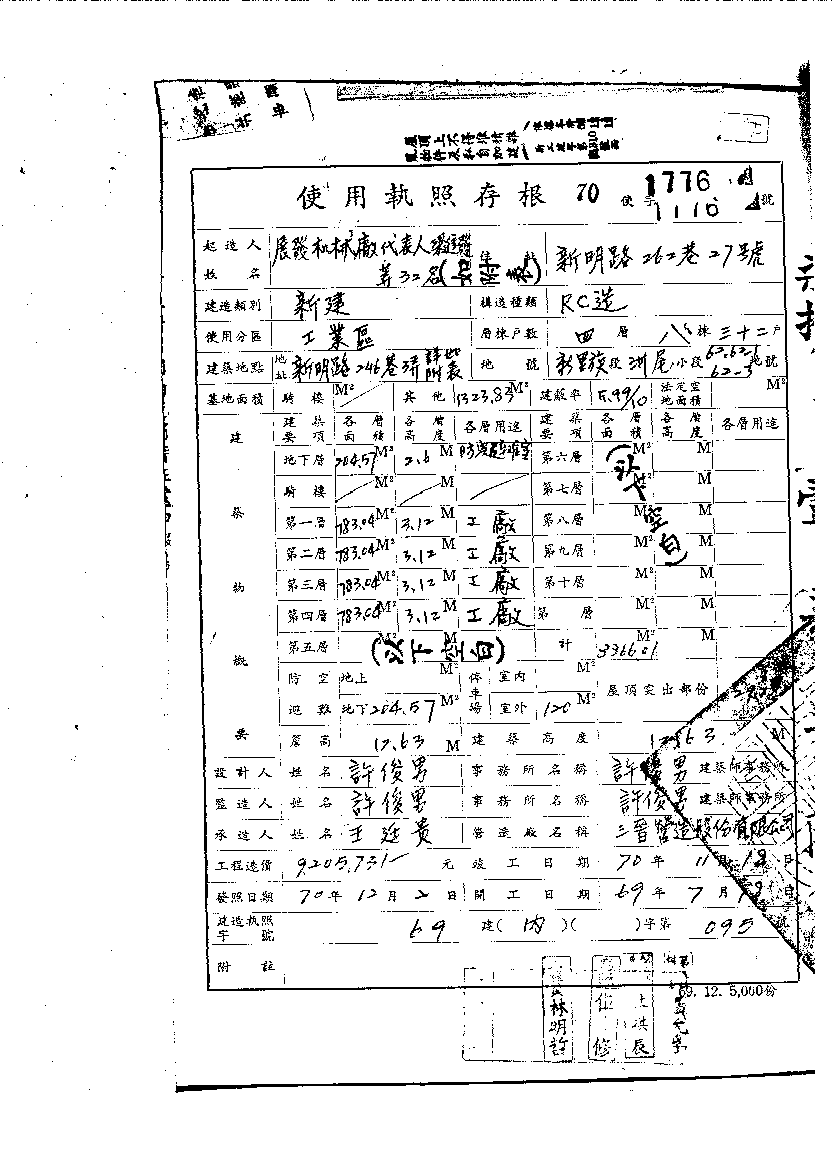 屋頂上不得堆積雜
使用執照存根 70 使字 1776 號
1110
起造人姓名 展發机械廠代表人 等32名(如附表) 住 新明路262巷27号
建造類別 新建 構造種類 RC造
使用分區 工業區 層棟戶數 四層 八棟 三十二戶
建築地點 地址 新明路246巷 詳如附表 地號 段 洲尾小段 62.62-1 62-3 地號
基地面積 騎樓 M² 其他 1323.83M² 建蔽率 5.99/10 法定空地面積 M²
建築物概要 建築要項 各層面積 各層高度 各層用途 建築要項 各層面積 各層高度 各層用途
地下層 204.57M² 2.6M 第六層 M² M
騎樓 M² M 第七層 M² M
第一層 783.04M² 3.12M 工廠 第八層 M² M
第二層 783.04M² 3.12M 工廠 第九層 M² M
第三層 783.04M² 3.12M 工廠 第十層 M² M
第四層 783.04M² 3.12M 工廠 第 層 M² M
(以下空白)
第五層 M² M (以下空白) 計 3366.01 M
防空避難 地上 M² 停車場 室內 M² 屋頂突出部份
地下204.57M² 室外 120M²
簷高 12.63 M 建築高度 12.63 M
設計人 姓名 許俊男 事務所名稱 許俊男 建築師事務所
監造人 姓名 許俊男 事務所名稱 許俊男 建築師事務所
承造人 姓名 王廷貴 營造廠名稱 三晉營造股份有限公司
工程造價 9,205,731 元 竣工日期 70年11月12日
發照日期 70年12月2日 開工日期 69年7月 日
建造執照字號 69 建(內)( )字第 095
附註
69.12.5,000份
林明詮